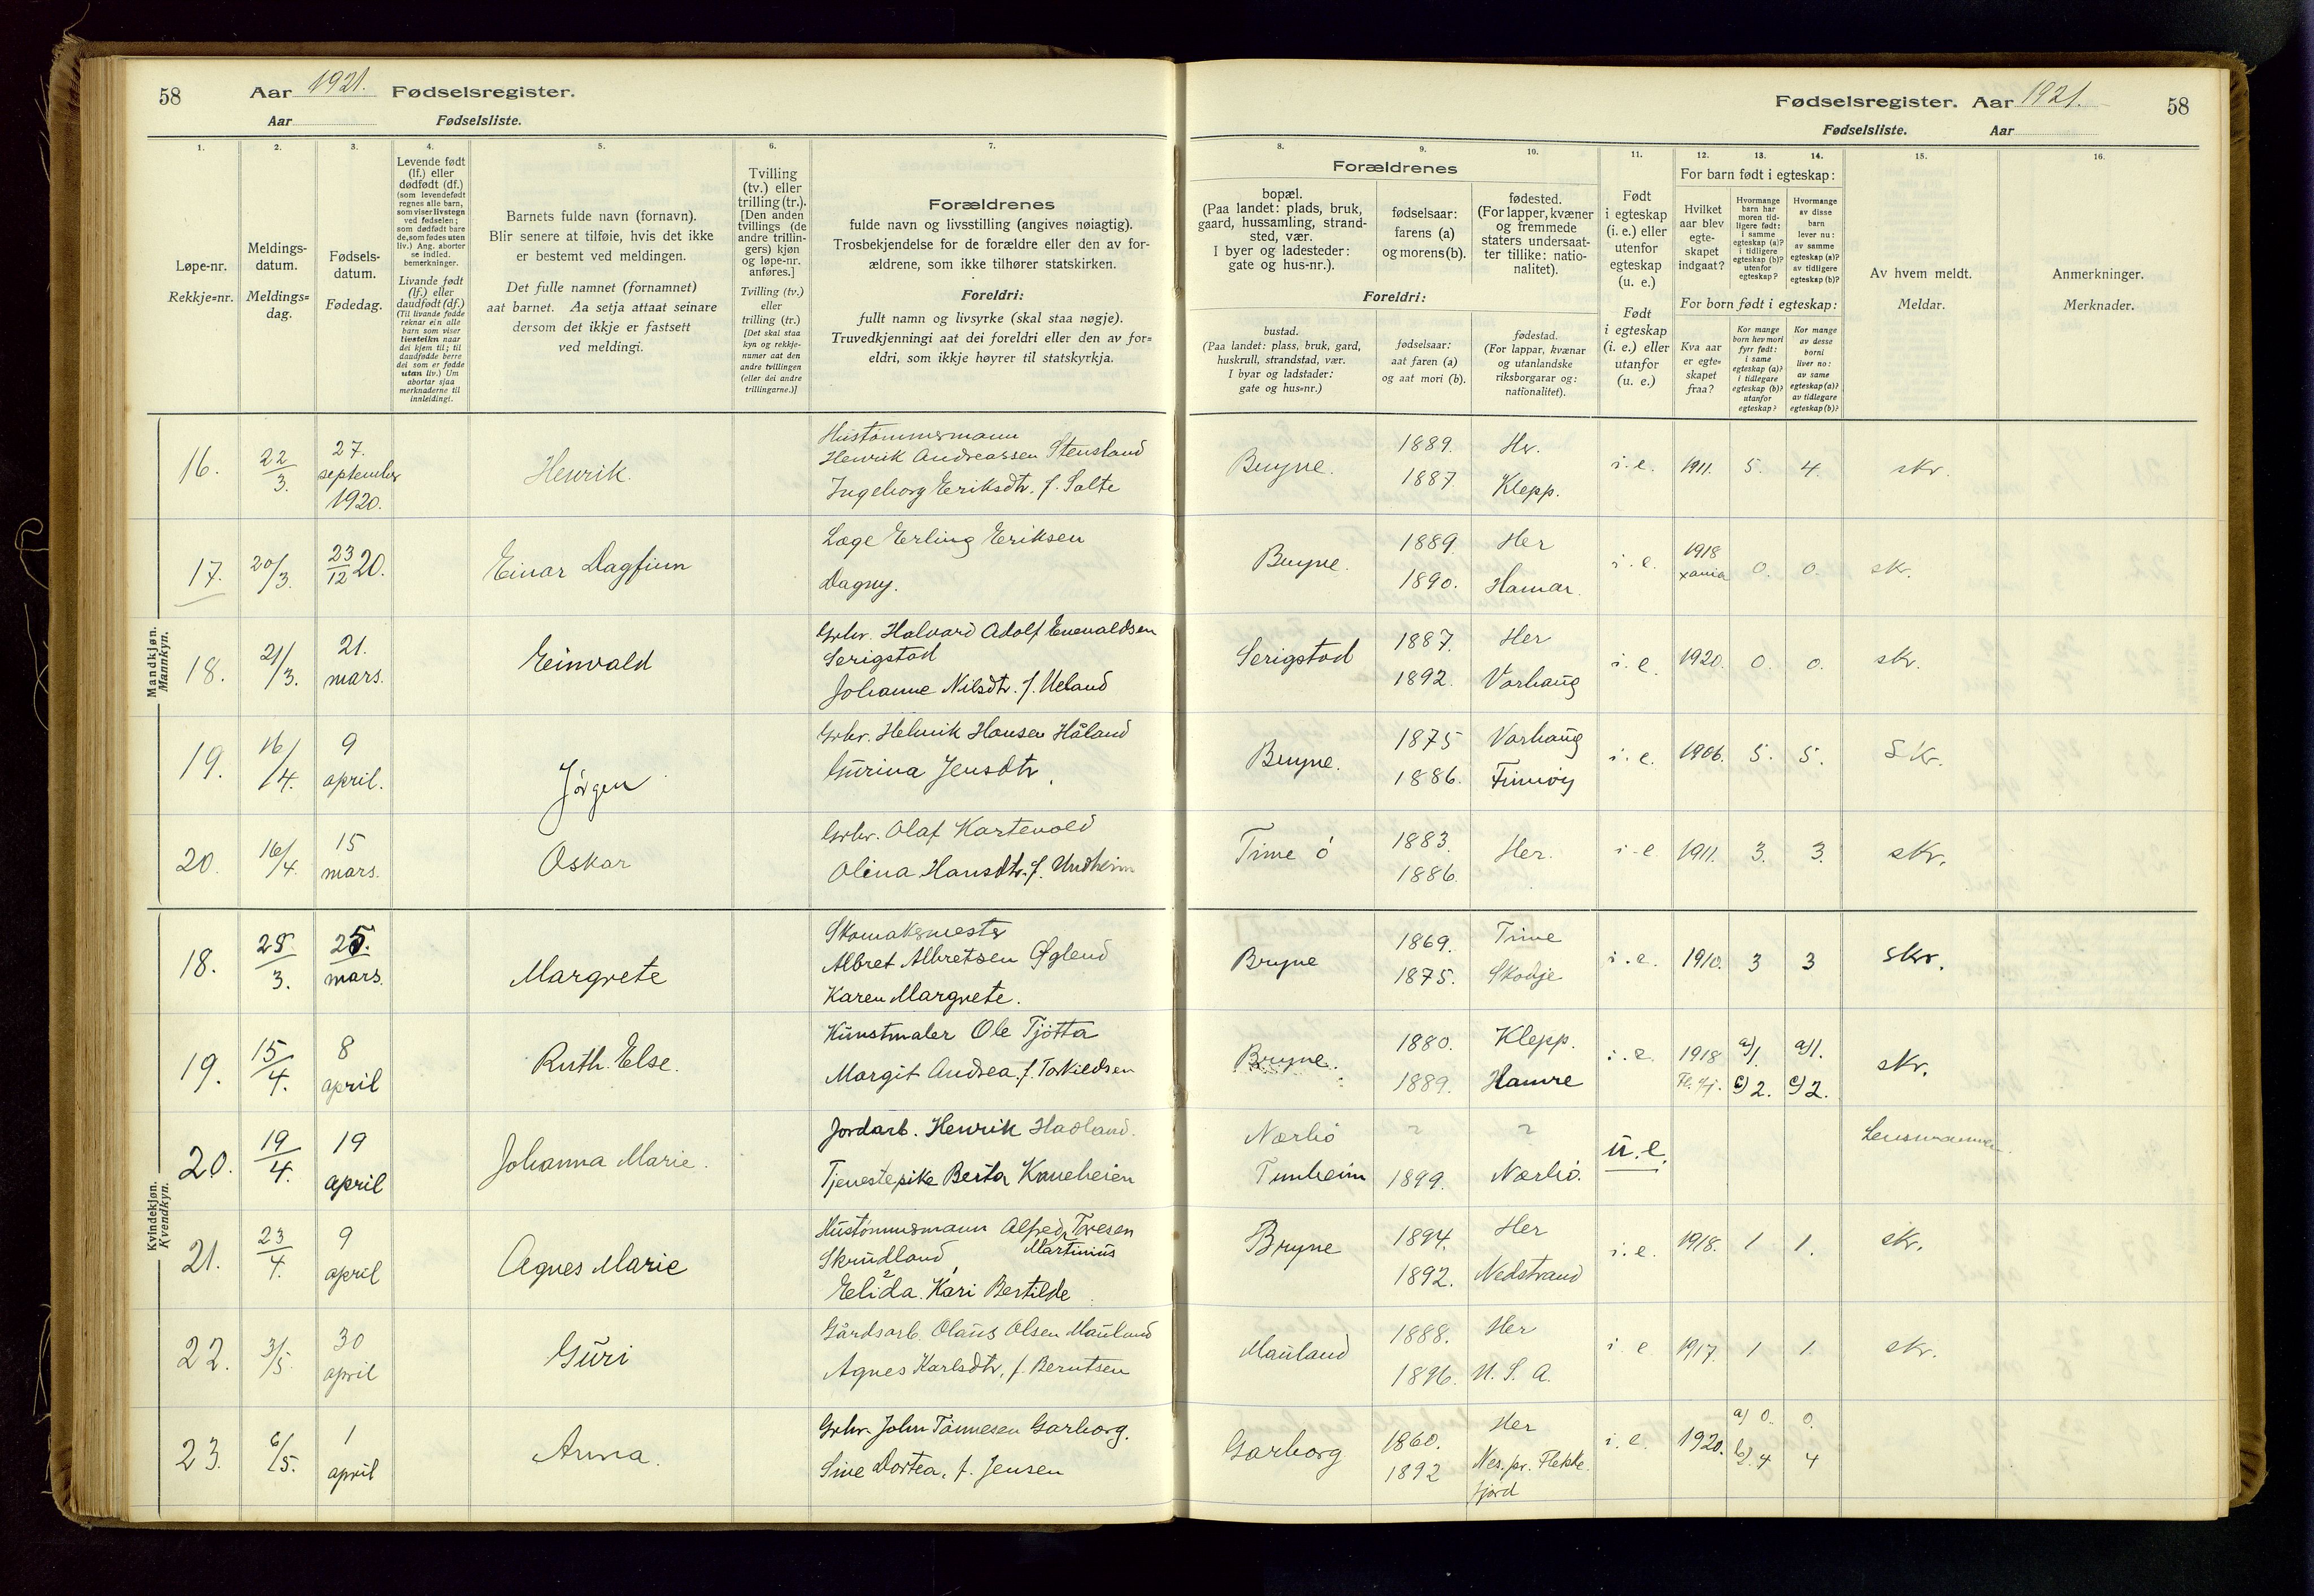 58 Aar 1921. Fødselsregister.
Aar Fødselsliste.
Fødselsregister. Aar 1921. 58
Fødselsliste. Aar
1. 2. 3. 4. 5. 6. 7. 8. 9. 10. 11. 12. 13. 14. 15. 16.
Løpe-nr.
Rekkje=nr.
Meldings-
datum.
Meldings=
dag.
Fødsels-
datum.
Fødedag.
Levende født
(lf.) eller
dødfødt (df.)
(som levendefødt
regnes alle barn,
som viser livstegn
ved fødselen;
som dødfødt bare
de, som fødes uten
liv.) Ang. aborter
se indled.
bemerkninger.
Livande født
(lf.) eller
daudfødt (df.)
(Til livande fødde
reknar ein alle
barn som viser
livsteikn naar
dei kjem til; til
daudfødde berre
dei som er fødde
utan liv.) Um
abortar sjaa
merknaderne til
innleidingi.
Barnets fulde navn (fornavn).
Blir senere at tilføie, hvis det ikke
er bestemt ved meldingen.
Det fulle namnet (fornamnet)
aat barnet. Aa setja attaat seinare
dersom det ikkje er fastsett
ved meldingi.
Tvilling
(tv.) eller
trilling (tr.).
[Den anden
tvillings (de
andre trillin-
gers) kjøn
og løpe-nr.
anføres.]
Tvilling (tv.)
eller
trilling (tr.)
[Det skal staa
kyn og rekkje-
numer aat den
andre tvillingen
(eller dei andre
trillingarne.)]
Forældrenes
fulde navn og livsstilling (angives nøiagtig).
Trosbekjendelse for de forældre eller den av for-
ældrene, som ikke tilhører statskirken.
Foreldri:
fullt namn og livsyrke (skal staa nøgje).
Truvedkjenningi aat dei foreldri eller den av for=
eldri, som ikkje høyrer til statskyrkja.
Forældrenes
bopæl.
(Paa landet: plads, bruk,
gaard, hussamling, strand-
sted, vær.
I byer og ladesteder:
gate og hus-nr.).
fødselsaar:
farens (a)
og morens (b).
fødested.
(For lapper, kvæner
og fremmede
staters undersaat-
ter tillike: natio-
nalitet).
Foreldri:
bustad.
(Paa landet: plass, bruk, gard,
huskrull, strandstad, vær.
I byar og ladstader:
gate og hus=nr.)
fødselsaar:
aat faren (a)
og aat mori (b).
fødestad.
(For lappar, kvænar
og utanlandske
riksborgarar og:
nationalitet).
Født
i egteskap
(i. e.) eller
utenfor
egteskap
(u. e.)
Født
i egteskap
(i. e.) eller
utanfor
(u. e.)
For barn født i egteskap:
Hvilket
aar blev
egte-
skapet
indgaat?
Hvormange
barn har
moren tid-
ligere født:
i samme
egteskap (a)?
i tidligere
egteskap (b)?
utenfor
egteskap?
Hvormange
av disse
barn
lever nu:
av samme
egteskap (a)?
av tidligere
egteskap (b)?
For born født i egteskap:
Kva aar
er egte=
skapet
fraa?
Kor mange
born hev mori
fyrr født:
i same
egteskap (a)?
i tidlegare
egteskap (b)?
utanfor
egteskap?
Kor mange
av desse
borni
liver no:
av same
egteskap (a)?
av tidlegare
egteskap (b)?
Av hvem meldt.
Meldar.
Anmerkninger.
Merknader.
Mandkjøn.
Mannkyn.
16. 22/3. 27. september 1920. Henrik. Hustømmermann
Henrik Andreassen Stensland
Ingeborg Eriksdtr. f. Salte
Bryne. 1889. 1887 Her. Klepp. i.e. 1911. 5. 4. skr.
17. 20/3. 23/12 20. Einar Dagfinn Læge Erling Eriksen
Dagny.
Bryne. 1889 1890. Her Hamar. i.e. 1918 xania 0. 0. skr.
18. 21/3. 21. mars. Einvald Grbr. Halvard Adolf Enevaldsen
Serigstad
Johanne Nilsdtr. f. Ueland
Serigstad 1887. 1892. Her Varhaug i.e. 1920. 0. 0. skr.
19. 16/4. 9 april. Jørgen Grbr. Helmik Hansen Håland
Gurina Jensdtr.
Bryne. 1875 1886. Varhaug Finnøy i.e. 1906. 5. 5. Skr.
20. 16/4. 15 mars. Oskar Grbr. Olaf Kartevold
Olina Hansdtr. f. Undheim
Time ó 1883. 1886. Her. i-e 1911. 3. 3. skr.
Kvindekjøn.
Kvendkyn.
18. 25/3. 25. mars. Margrete Skomakermester
Albret Albretsen Øglend
Karen Margrete.
Bryne 1869. 1875. Time Skodje i.e. 1910. 3 3 skr.
19. 15/4. 8 april Ruth Else. Kunstmaler Ole Tjøtta
Margit Andrea f. Torkildsen
Bryne. 1880. 1889. Klepp. Hamre i.e. 1918 a) 1. c) 2. a) 1. c) 2. skr.
20. 19/4. 19 april Johanna Marie. Jordarb. Henrik Hadland.
Tjenestepike Berta Knueheien
Nærbø Tunheim ? 1899. ? Nærbø. u.e. Lensmannen
21. 23/4. 9 april Agnes Marie Hustømmermann Alfred Martinius Toresen
Skrudland
Elida Kari Bertilde
Bryne 1894. 1892. Her Nedstrand i.e. 1918. 1 1. skr.
22. 3/5. 30 april Guri Gårdsarb. Olaus Olsen Mauland
Agnes Karlsdtr. f. Berntsen
Mauland 1888. 1896. Her U. S. A. i.e 1917. 1 1. skr.
23. 6/5. 1 april Anna. Grbr. John Tønnesen Garborg.
Sine Dortea, f. Jensen
Garborg 1860. 1892 Her Nes. pr. Flekke-
fjord i.e. 1920. a) 0. b) 4 0. 4